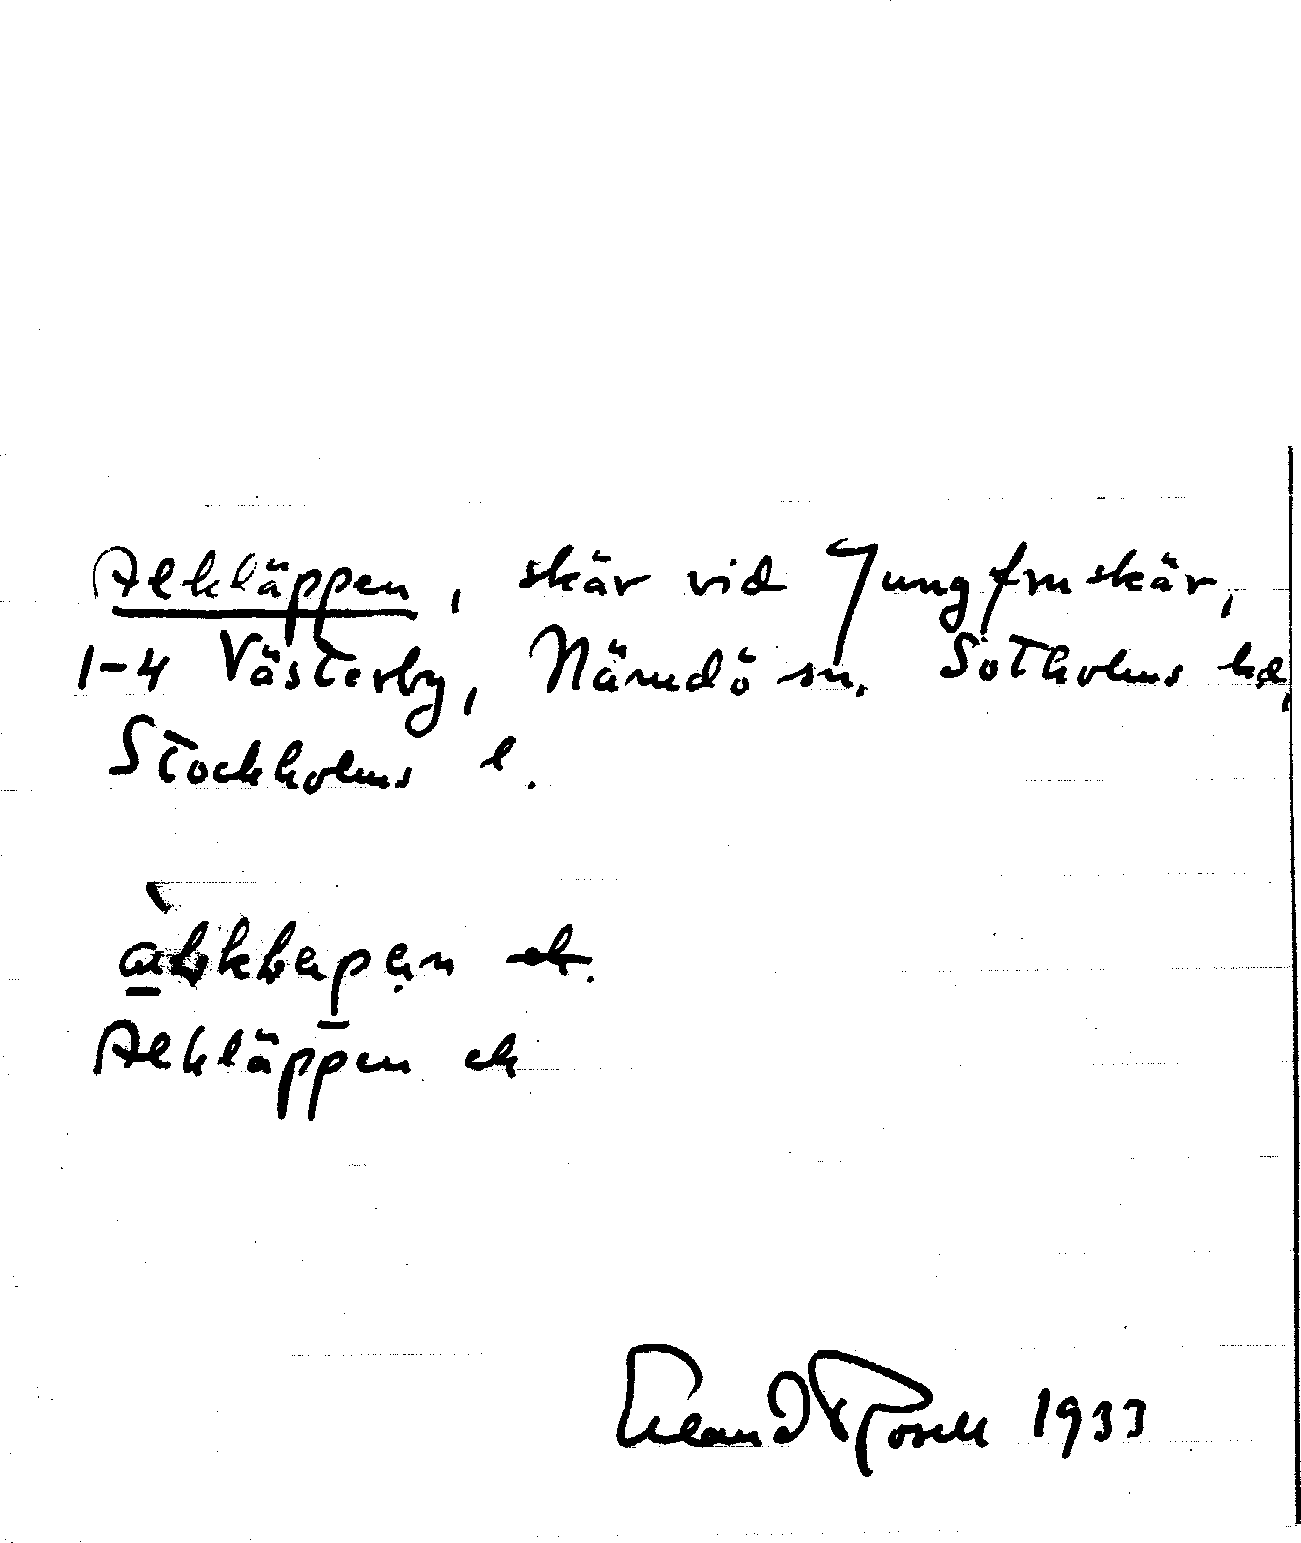 Alkläppen, skär vid Jungfruskär,
1-4 Västerby, Nämdö sn. Sotholms hd,
Stockholms l.
Alkläppen ek
Erland Rosell 1933